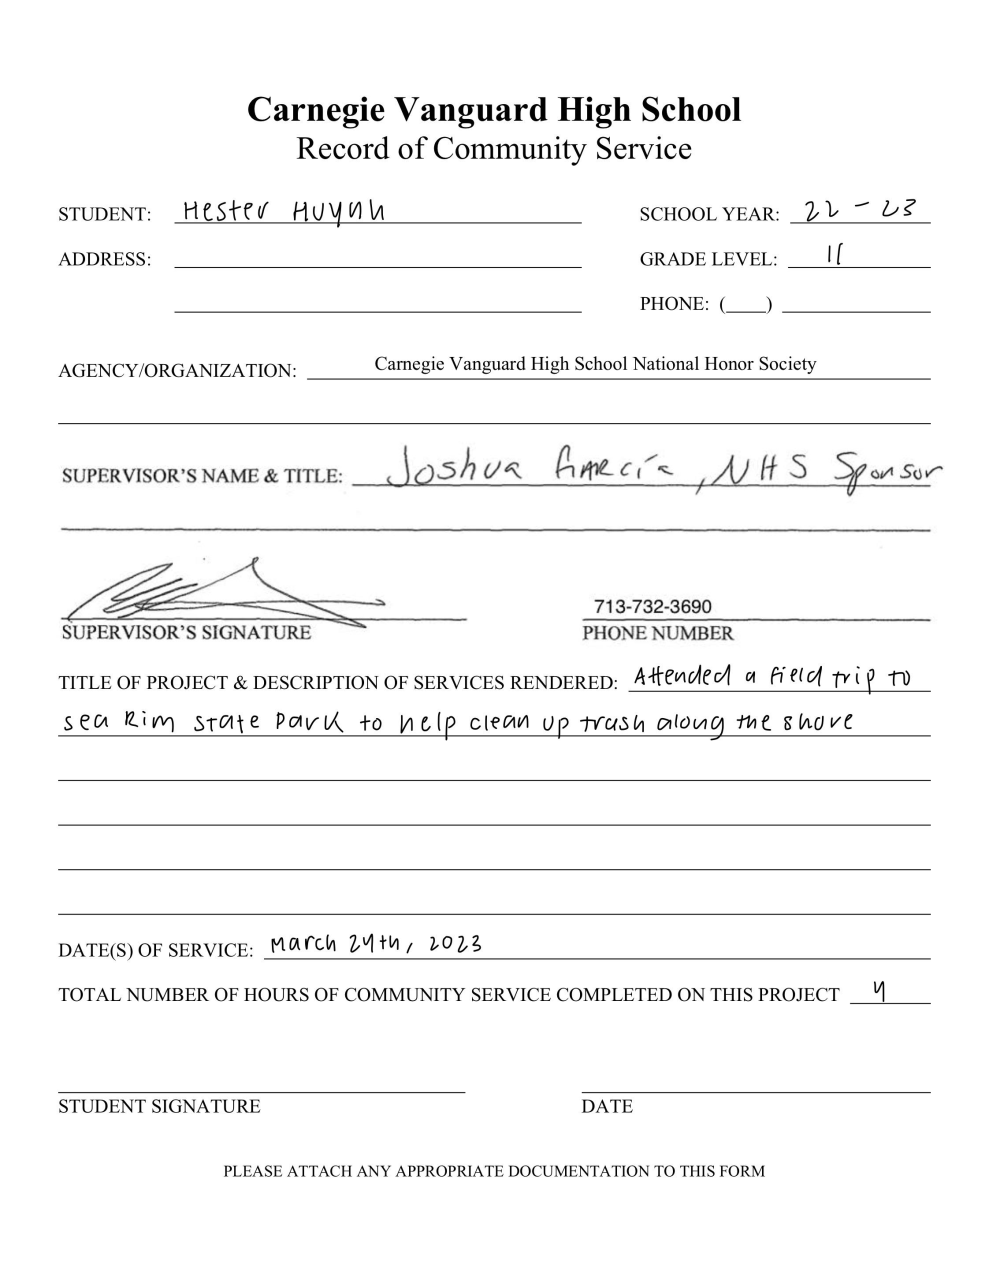 Carnegie Vanguard High School
Record of Community Service
STUDENT: Hester Huynh SCHOOL YEAR: 22 - 23
ADDRESS: GRADE LEVEL: 11
PHONE: (____)
AGENCY/ORGANIZATION: Carnegie Vanguard High School National Honor Society
SUPERVISOR'S NAME & TITLE: Joshua García, NHS Sponsor
713-732-3690
SUPERVISOR'S SIGNATURE PHONE NUMBER
TITLE OF PROJECT & DESCRIPTION OF SERVICES RENDERED: Attended a field trip to
sea Rim state Park to help clean up trash along the shore
DATE(S) OF SERVICE: March 24th, 2023
TOTAL NUMBER OF HOURS OF COMMUNITY SERVICE COMPLETED ON THIS PROJECT 4
STUDENT SIGNATURE DATE
PLEASE ATTACH ANY APPROPRIATE DOCUMENTATION TO THIS FORM